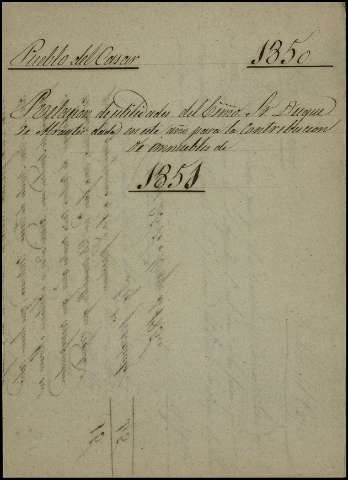 Pueblo del Casar 1850
Relacion de utilidades del Exmo. Sr. Duque
de dada en este año para la Contribucion
de inmuebles de
1851